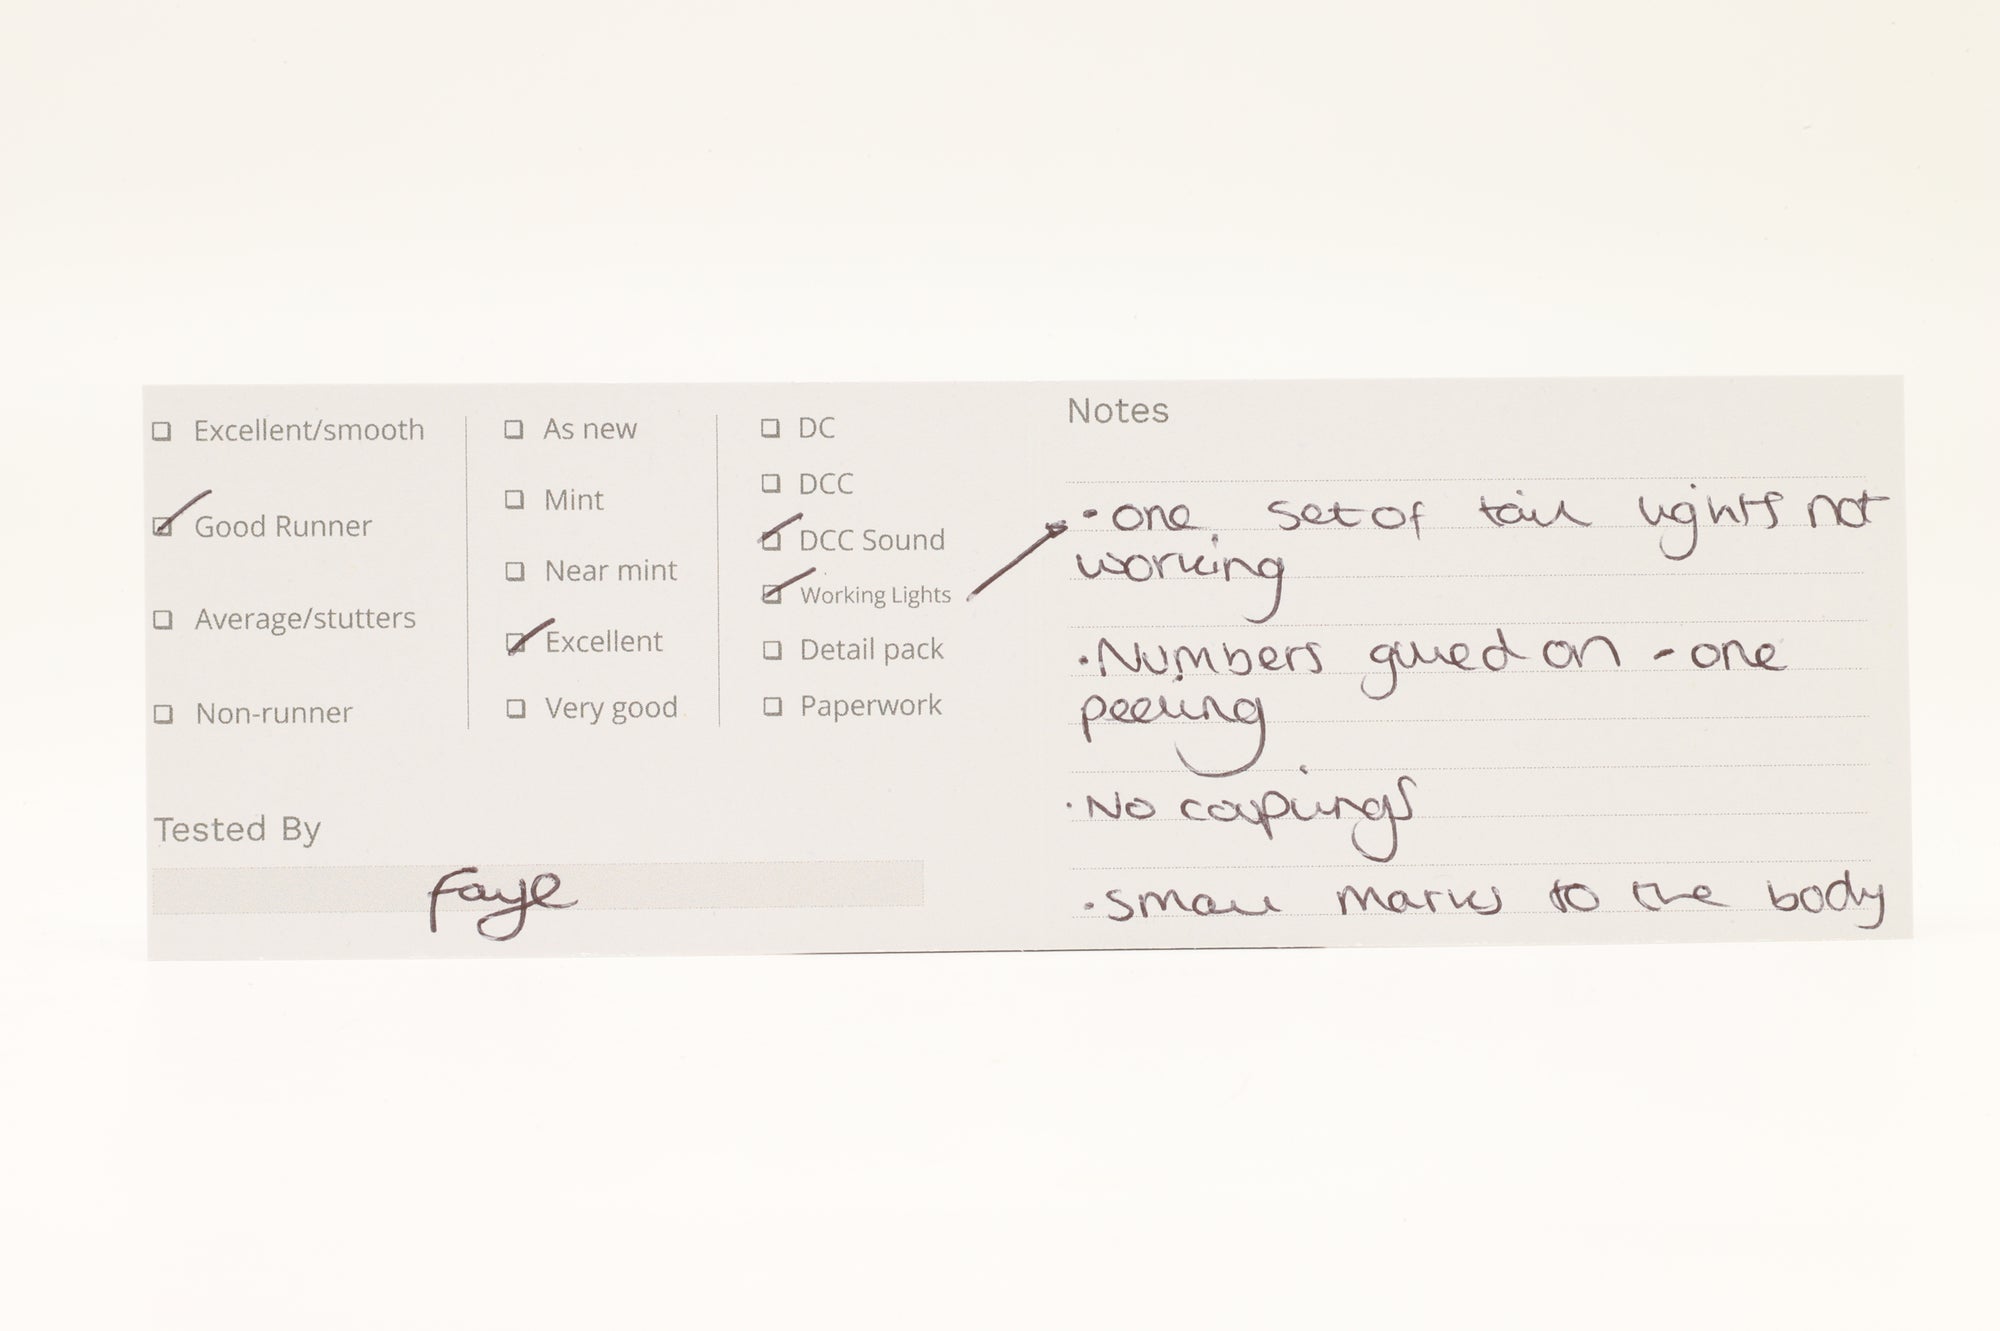 Excellent/smooth
Good Runner
Average/stutters
Non-runner
As new
Mint
Near mint
Excellent
Very good
DC
DCC
DCC Sound
Working Lights
Detail pack
Paperwork
Tested By
Faye
Notes
• one set of tail lights not
working
• Numbers glued on - one
peeling
• No couplings
• small marks to the body